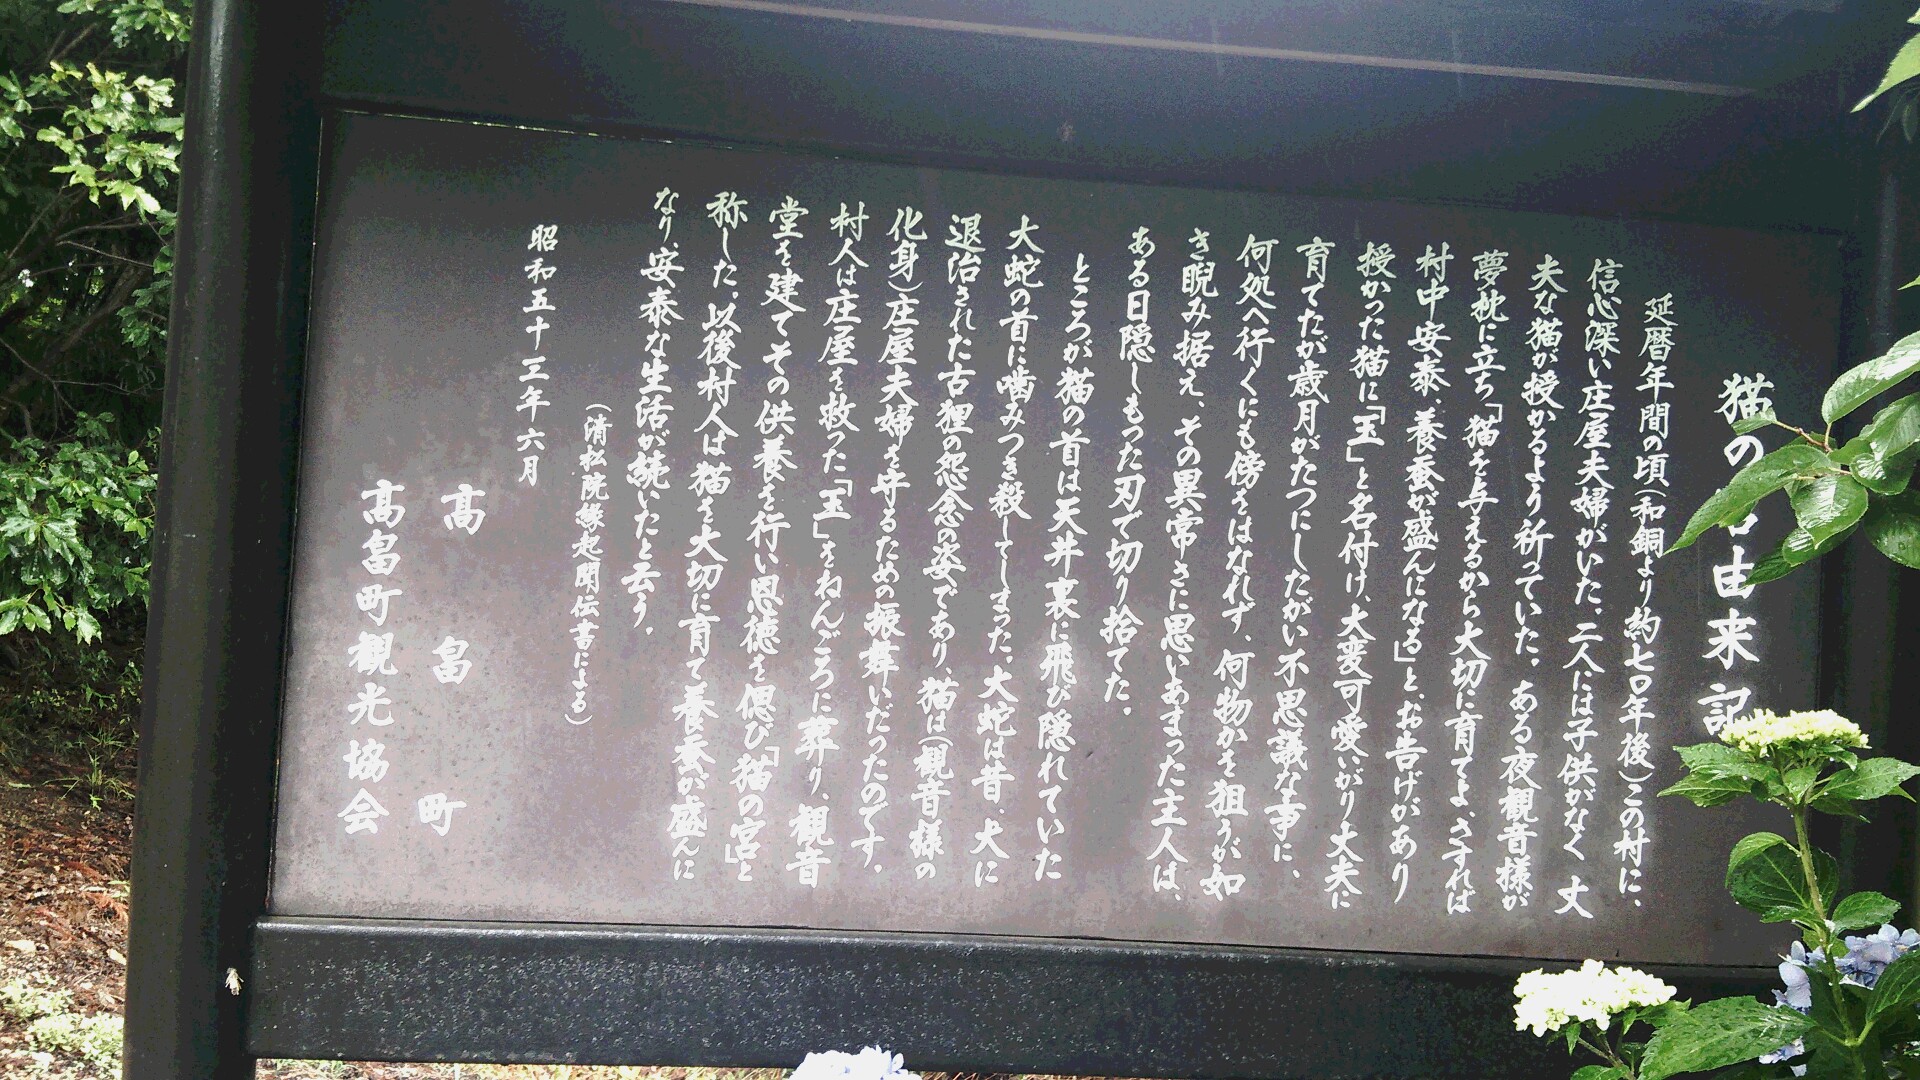 猫の由来記
延暦年間の頃(和銅より約七〇年後)この村に、
信心深い庄屋夫婦がいた。二人には子供がなく 丈
夫な猫が授かるより祈っていた。ある夜観音様が
夢枕に立ち「猫を与えるから大切に育てよ、さすれば
村中安泰、養蚕が盛んになる」と、お告げがあり
授かった猫に「玉」と名付け、大変可愛いがり丈夫に
育てたが歳月がたつにしたがい不思議な事に、
何処へ行くにも傍をはなれず、何物かを狙うが如
き睨み据え、その異常さに思いあまった主人は、
ある日隠しもった刃で切り捨てた。
ところが猫の首は天井裏に飛び隠れていた
大蛇の首に噛みつき殺してしまった。大蛇は昔、犬に
退治された古狸の怨念の姿であり、猫は(観音様の
化身)庄屋夫婦を守るための振舞いだったのです。
村人は庄屋を救った「玉」をねんごろに葬り、観音
堂を建てその供養を行い恩徳を偲び「猫の宮」と
称した。以後村人は猫を大切に育て養蚕が盛んに
なり、安泰な生活が続いたと云う。
(清松院縁起聞伝書による)
昭和五十三年六月
高畠町
高畠町観光協会